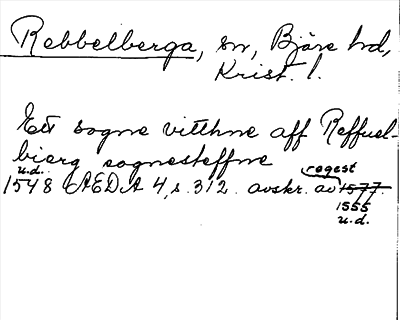 Rebbelberga, sn, Bjäre hd,
Krist. l.
Ett sogne vitthne aff Reffuel-
bierg sognesteffne
u.d. regest
1548 AEDA 4, s. 312. avskr. av 1577.
1555
u.d.